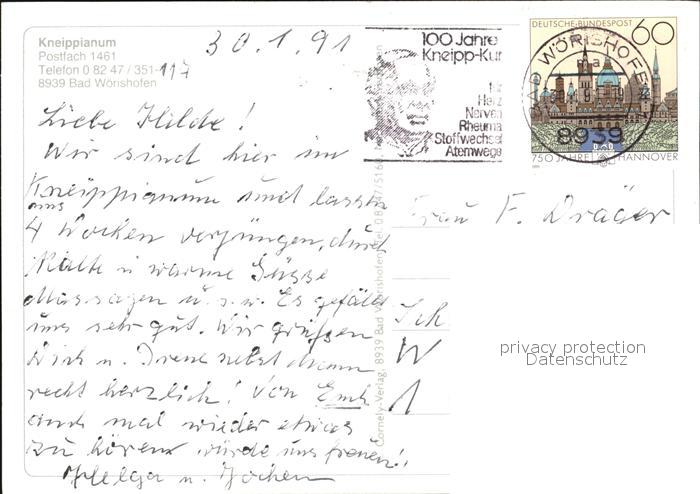 Kneippianum
Postfach 1461
Telefon 0 82 47 / 351-117
8939 Bad Wörishofen
30.1.91
100 Jahre
Kneipp-Kur
für
Herz
Nerven
Rheuma
Stoffwechsel
Atemwege
DEUTSCHE BUNDESPOST 60
BAD WÖRISHOFEN
8939
750 JAHRE HANNOVER
Liebe Hilde!
Wir sind hier im
Kneippianum und lassen
uns
4 Wochen verjüngen, durch
Kalte u warme Güsse
Massagen u. s. w. Es gefällt
uns sehr gut. Wir grüßen
Dich u. Irene nebst
recht herzlich! Von Euch
auch mal wieder etwas
zu hören würde uns freuen!
Helga u. Jochen
Frau F. Dräger
Sch
W
1
Cornely-Verlag, 8939 Bad Wörishofen, Tel. 0 82 47/51
privacy protection
Datenschutz